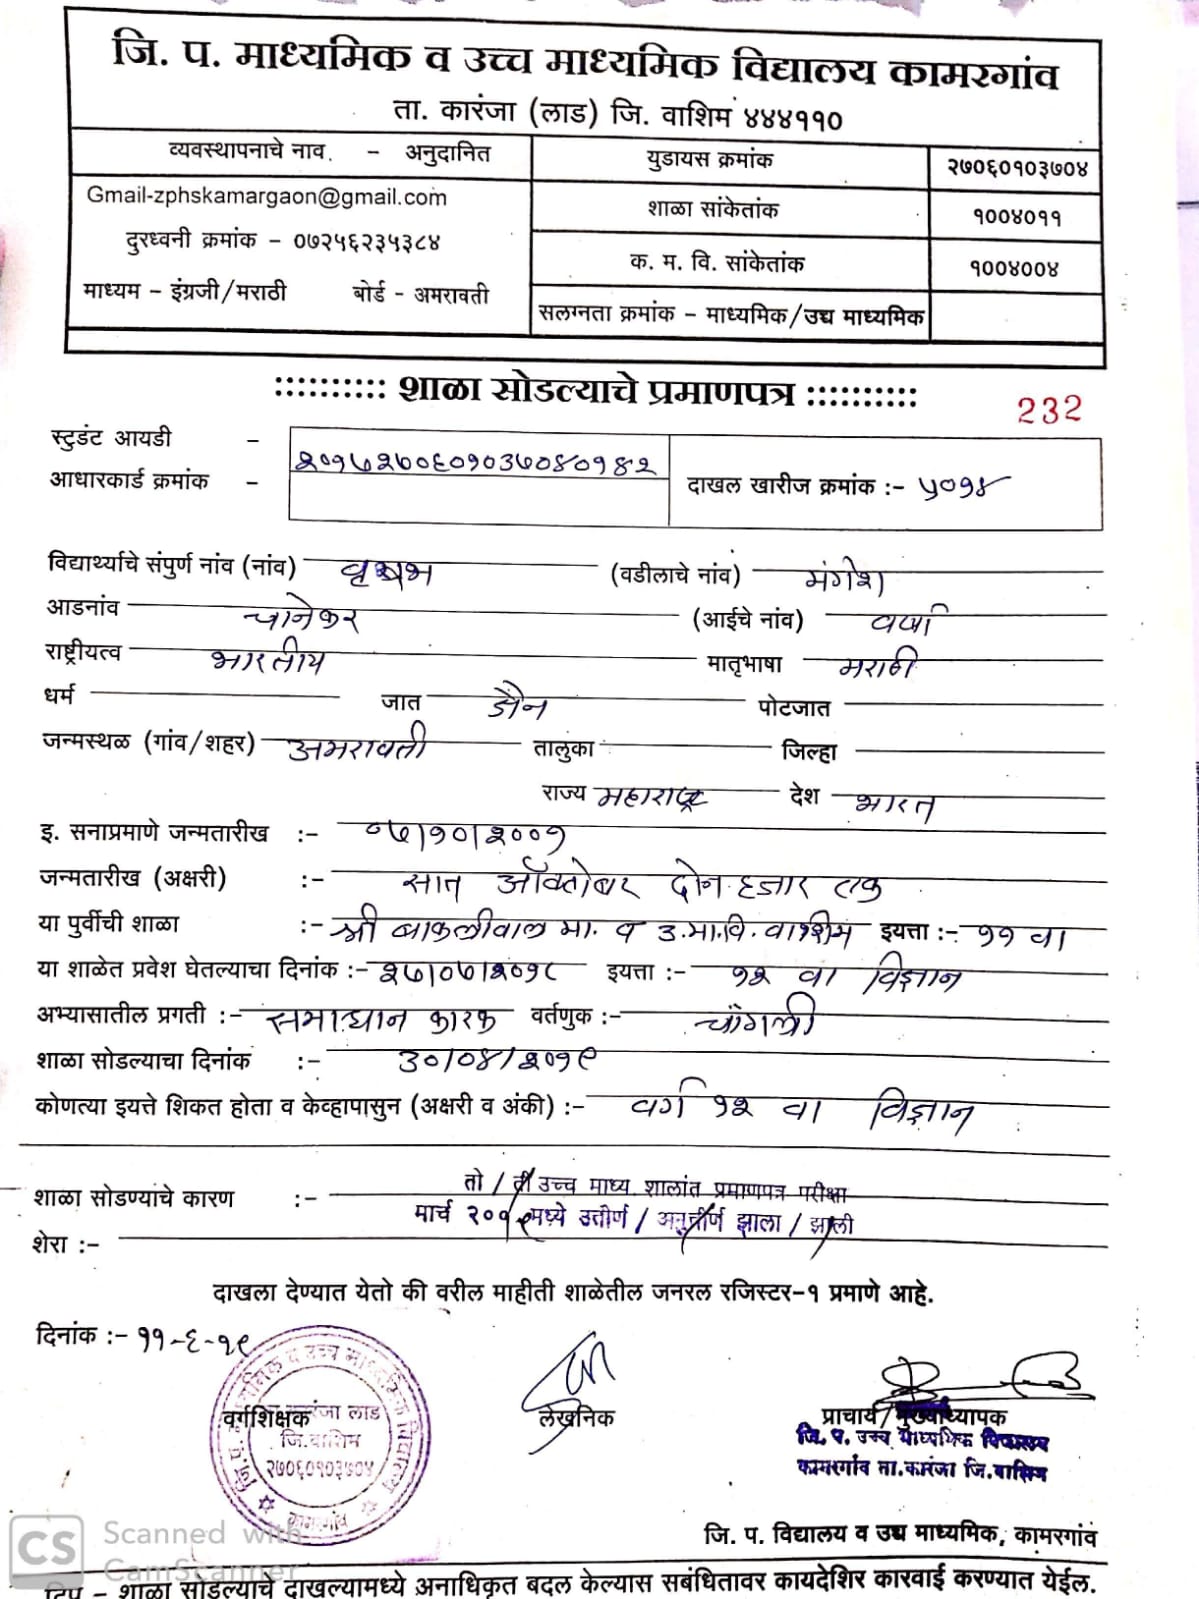 जि. प. माध्यमिक व उच्च माध्यमिक विद्यालय कामरगांव
ता. कारंजा (लाड) जि. वाशिम ४४४११०
व्यवस्थापनाचे नाव. - अनुदानित
युडायस क्रमांक २७०६०१०३७०४
Gmail-zphskamargaon@gmail.com
शाळा सांकेतांक १००४०११
दुरध्वनी क्रमांक - ०७२५६२३५३८४
क. म. वि. सांकेतांक १००४००४
माध्यम - इंग्रजी/मराठी बोर्ड - अमरावती
सलग्नता क्रमांक - माध्यमिक/उच्च माध्यमिक
:::::::::: शाळा सोडल्याचे प्रमाणपत्र ::::::::::
232
स्टुडंट आयडी - २०१५२७०६०१०३७०४०१४२
आधारकार्ड क्रमांक -
दाखल खारीज क्रमांक :- ५०१४
विद्यार्थ्याचे संपुर्ण नांव (नांव) वृषभ (वडीलाचे नांव) मंगेश
आडनांव चानेकर (आईचे नांव) वर्षा
राष्ट्रीयत्व भारतीय मातृभाषा मराठी
धर्म जात जैन पोटजात
जन्मस्थळ (गांव/शहर) अमरावती तालुका जिल्हा
राज्य महाराष्ट्र देश भारत
इ. सनाप्रमाणे जन्मतारीख :- ०७/१०/२००१
जन्मतारीख (अक्षरी) :- सात ऑक्तोबर दोन हजार एक
या पुर्वीची शाळा :- श्री बाकलीवाल मा. व उ.मा.वि. वाशिम इयत्ता :- ११ वा
या शाळेत प्रवेश घेतल्याचा दिनांक :- २७/०७/२०१८ इयत्ता :- १२ वा विज्ञान
अभ्यासातील प्रगती :- समाधान कारक वर्तणुक :- चांगली
शाळा सोडल्याचा दिनांक :- ३०/०४/२०१९
कोणत्या इयत्ते शिकत होता व केव्हापासुन (अक्षरी व अंकी) :- वर्ग १२ वा विज्ञान
शाळा सोडण्यांचे कारण :- तो / ती उच्च माध्य शालांत प्रमाणपत्र परीक्षा
मार्च २०१९ मध्ये उत्तीर्ण / अनुत्तीर्ण झाला / झाली
शेरा :-
दाखला देण्यात येतो की वरील माहीती शाळेतील जनरल रजिस्टर-१ प्रमाणे आहे.
दिनांक :- ११-६-१९
वर्गशिक्षक
लेखनिक
प्राचार्य/मुख्याध्यापक
जि. प. उच्च माध्यमिक विद्यालय
कामरगांव ता.कारंजा जि.वाशिम
कारंजा लाड
जि.वाशिम
२७०६०१०३७०४
कामरगांव
जि. प. विद्यालय व उच्च माध्यमिक, कामरगांव
CS Scanned with
CamScanner
टिप - शाळा सोडल्याचे दाखल्यामध्ये अनाधिकृत बदल केल्यास सबंधितावर कायदेशिर कारवाई करण्यात येईल.